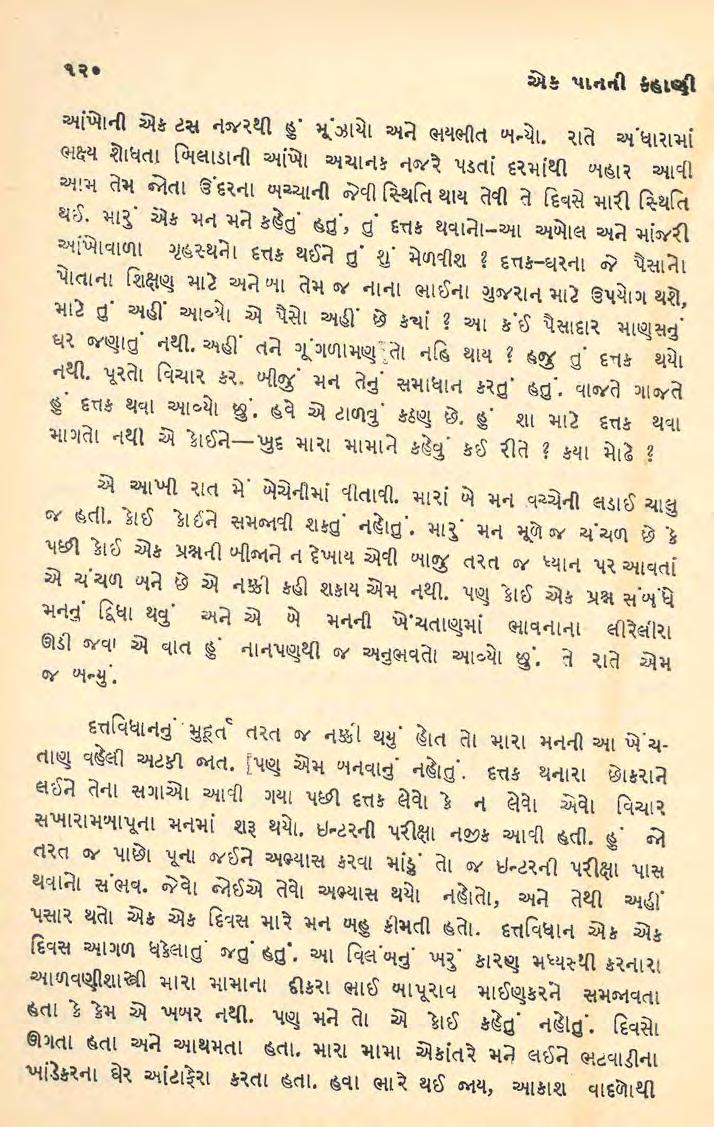 ૧૨૦
એક પાનની કહાણી
આંખોની એક ટસ નજરથી હું મૂંઝાયો અને ભયભીત બન્યો. રાતે અંધારામાં
ભક્ષ્ય શોધતા બિલાડાની આંખો અચાનક નજરે પડતાં દરમાંથી બહાર આવી
આમ તેમ જોતા ઉંદરના બચ્ચાની જેવી સ્થિતિ થાય તેવી તે દિવસે મારી સ્થિતિ
થઈ. મારું એક મન મને કહેતું હતું, તું દત્તક થવાનો–આ અબોલ અને માંજરી
આંખોવાળા ગૃહસ્થનો દત્તક થઈને તું શું મેળવીશ ? દત્તક–ઘરના જે પૈસાનો
પોતાના શિક્ષણ માટે અને બા તેમ જ નાના ભાઈના ગુજરાન માટે ઉપયોગ થશે,
માટે તું અહીં આવ્યો એ પૈસો અહીં છે કયાં ? આ કંઈ પૈસાદાર માણસનું
ઘર જણાતું નથી. અહીં તને ગૂંગળામણ તો નહિ થાય ? હજુ તું દત્તક થયો
નથી. પૂરતો વિચાર કર. બીજું મન તેનું સમાધાન કરતું હતું. વાજતે ગાજતે
હું દત્તક થવા આવ્યો છું. હવે એ ટાળવું કઠણ છે. હું શા માટે દત્તક થવા
માગતો નથી એ કોઈને—ખુદ મારા મામાને કહેવું કઈ રીતે ? કયા મોઢે ?
એ આખી રાત મેં બેચેનીમાં વીતાવી. મારાં બે મન વચ્ચેની લડાઈ ચાલુ
જ હતી. કોઈ કોઈને સમજાવી શકતું નહોતું. મારું મન મૂળે જ ચંચળ છે કે
પછી કોઈ એક પ્રશ્નની બીજાને ન દેખાય એવી બાજુ તરત જ ધ્યાન પર આવતાં
એ ચંચળ બને છે એ નક્કી કહી શકાય એમ નથી. પણ કોઈ એક પ્રશ્ન સંબંધે
મનનું દ્વિધા થવું અને એ બે મનની ખેંચતાણમાં ભાવનાના લીરેલીરા
ઊડી જવા એ વાત હું નાનપણથી જ અનુભવતો આવ્યો છું. તે રાતે એમ
જ બન્યું.
દત્તવિધાનનું મુહૂર્ત તરત જ નક્કી થયું હોત તો મારા મનની આ ખેંચ-
તાણ વહેલી અટકી જાત. પણ એમ બનવાનું નહોતું. દત્તક થનારા છોકરાને
લઈને તેના સગાઓ આવી ગયા પછી દત્તક લેવો કે ન લેવો એવો વિચાર
સખારામબાપૂના મનમાં શરૂ થયો. ઇન્ટરની પરીક્ષા નજીક આવી હતી. હું જો
તરત જ પાછો પૂના જઈને અભ્યાસ કરવા માંડું તો જ ઇન્ટરની પરીક્ષા પાસ
થવાનો સંભવ. જેવો જોઈએ તેવો અભ્યાસ થયો નહોતો, અને તેથી અહીં
પસાર થતો એક એક દિવસ મારે મન બહુ કીમતી હતો. દત્તવિધાન એક એક
દિવસ આગળ ધકેલાતું જતું હતું. આ વિલંબનું ખરું કારણ મધ્યસ્થી કરનારા
આળવણીશાસ્ત્રી મારા મામાના દીકરા ભાઈ બાપૂરાવ માઈણકરને સમજાવતા
હતા કે કેમ એ ખબર નથી. પણ મને તો એ કોઈ કહેતું નહોતું. દિવસો
ઊગતા હતા અને આથમતા હતા. મારા મામા એકાંતરે મને લઈને ભટવાડીના
ખાંડેકરના ઘેર આંટાફેરા કરતા હતા. હવા ભારે થઈ જાય, આકાશ વાદળોથી